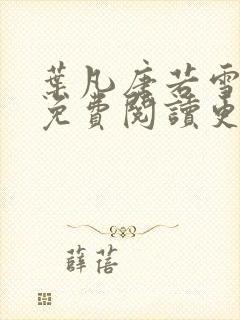 葉凡唐若雪
免費閱讀更
薛蓓